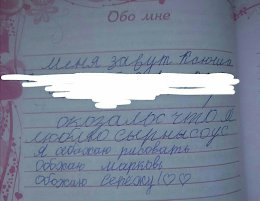 Обо мне
Меня завут Ксюша
оказалось что я
люблю сырны соус
Я обажаю рисовать
Обажаю марковь
Обажаю Серёжу!♡♡